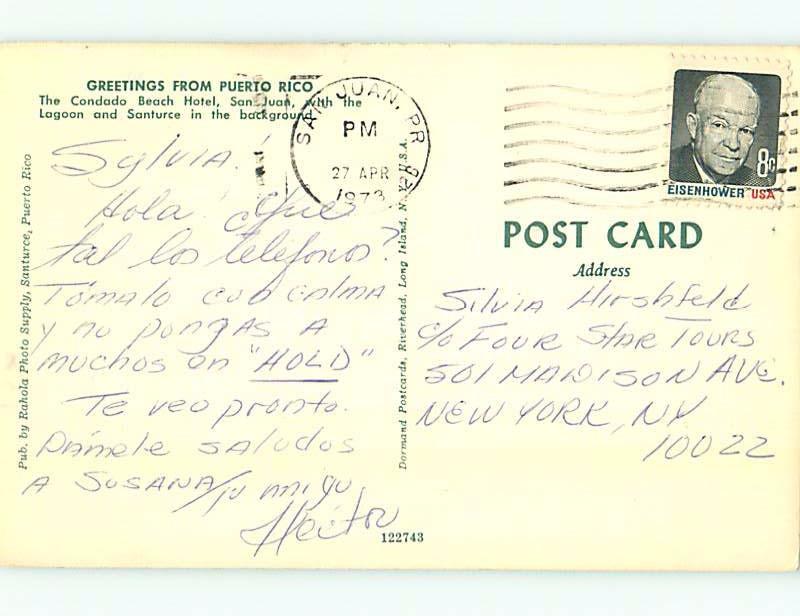 GREETINGS FROM PUERTO RICO
The Condado Beach Hotel, San Juan, with the
Lagoon and Santurce in the background.
Sylvia!
Hola! ¿Que
tal los telefonos?
Tómalo con calma
y no pongas a
muchos en "HOLD"
Te veo pronto.
Dámele saludos
a SUSANA/tu amigo,
Héctor
Pub. by Rahola Photo Supply, Santurce, Puerto Rico
Dormand Postcards, Riverhead, Long Island, N.Y. U.S.A.
122743
SAN JUAN, PR
PM
27 APR
1973
8c
EISENHOWER USA
POST CARD
Address
Silvia Hirshfeld
c/o FOUR STAR TOURS
501 MADISON AVE.
NEW YORK, NY
10022